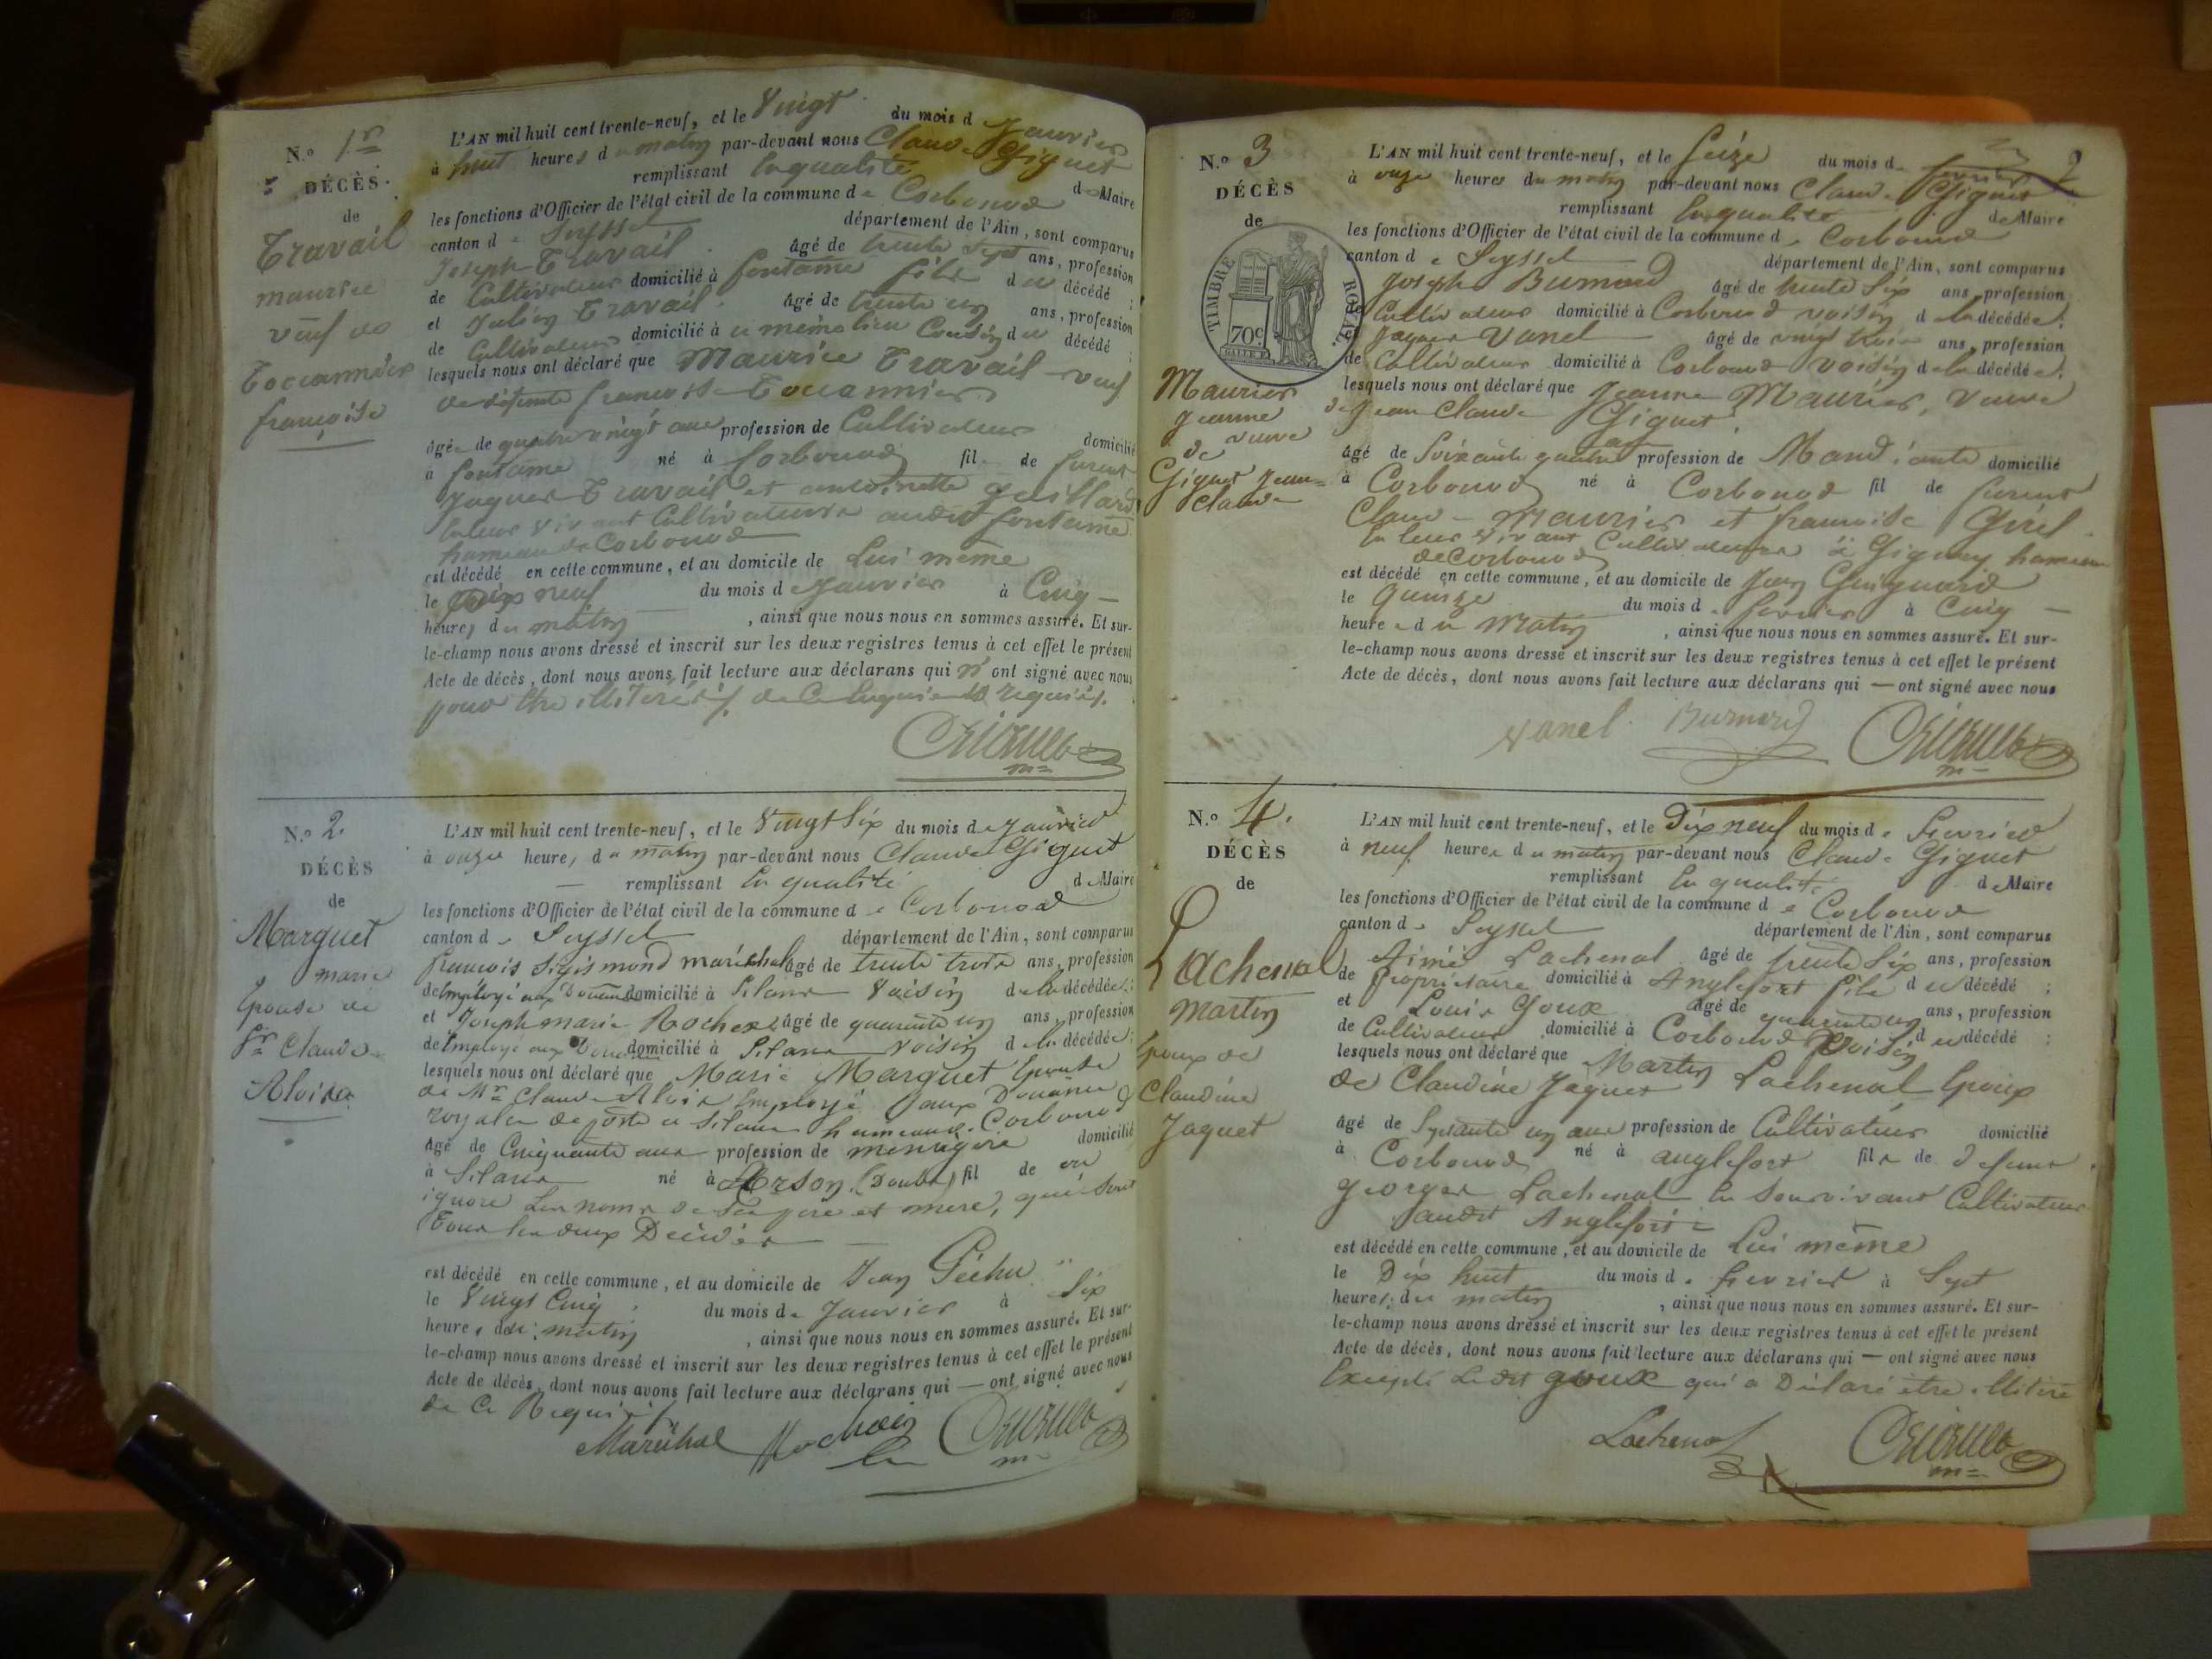 N.o 1.er
DÉCÈS.
de
Travail
maurice
veuf de
françoise
L'AN mil huit cent trente-neuf, et le Vingt du mois d Janvier
à huit heures du matin par-devant nous Claude Giguet
remplissant en qualité de Maire
les fonctions d'Officier de l'état civil de la commune de Corbonod
canton de Seyssel département de l'Ain, sont comparus
Joseph Travail âgé de trente Sept ans, profession
de Cultivateur domicilié à fontaine fils du décédé ;
et Julien Travail âgé de trente un ans, profession
de Cultivateur domicilié à ce même lieu Cousin du décédé ;
lesquels nous ont déclaré que Maurice Travail veuf
de défunte francoise
âgé de quatre vingt ans profession de Cultivateur domicilié
à fontaine né à Corbonod fil de furent
Jaques Travail et antoinette gaillard
en leur vivant Cultivateurs audit fontaine
hameau de Corbonod
est décédé en cette commune, et au domicile de Lui même
le dix neuf du mois de Janvier à Cinq
heures du matin , ainsi que nous nous en sommes assuré. Et sur-
le-champ nous avons dressé et inscrit sur les deux registres tenus à cet effet le présent
Acte de décès, dont nous avons fait lecture aux déclarans qui n'ont signé avec nous
pour être illitérés, de ce enquis et requis.
N.o 2.
DÉCÈS
de
Marguet
marie
Epouse de
Sr Claude
L'AN mil huit cent trente-neuf, et le Vingt Six du mois de Janvier
à onze heures du matin par-devant nous Claude Giguet
remplissant en qualité de Maire
les fonctions d'Officier de l'état civil de la commune de Corbonod
canton de Seyssel département de l'Ain, sont comparus
francois Sigismond maréchal âgé de trente trois ans, profession
de Employé aux Douanes domicilié à Silans Voisin de la décédée ;
et Joseph marie âgé de quarante un ans, profession
de Employé aux Douanes domicilié à Silans voisin de la décédée ;
lesquels nous ont déclaré que Marie Marguet Epouse
de Mr Claude Employé aux Douanes
royales de poste à Silans hameau de Corbonod
âgé de Cinquante ans profession de ménagère domicilié
à Silans né à (Doubs) fil de on
ignore les noms de ses père et mère, qui sont
Tous les deux Décédés
est décédé en cette commune, et au domicile de Jean Péchu
le Vingt Cinq du mois de Janvier à Six
heures du matin , ainsi que nous nous en sommes assuré. Et sur-
le-champ nous avons dressé et inscrit sur les deux registres tenus à cet effet le présent
Acte de décès, dont nous avons fait lecture aux déclarans qui — ont signé avec nous
de Ce Requis
Maréchal
N.o 3
DÉCÈS
de
TIMBRE ROYAL
70c
Maurier
Jeanne
veuve
de
Giguet Jean=
Claude
2
L'AN mil huit cent trente-neuf, et le Seize du mois de fevrier
à onze heures du matin par-devant nous Claude Giguet
remplissant en qualité de Maire
les fonctions d'Officier de l'état civil de la commune de Corbonod
canton de Seyssel département de l'Ain, sont comparus
Joseph Burnod âgé de trente Six ans, profession
de Cultivateur domicilié à Corbonod voisin de la décédée ;
Jaques Vanel âgé de vingt trois ans, profession
de Cultivateur domicilié à Corbonod voisin de la décédée ;
lesquels nous ont déclaré que Jeanne Maurier, veuve
de Jean Claude Giguet
âgé de Soixante quatre ans profession de Mandiante domicilié
à Corbonod né à Corbonod fil de furent
Claude Maurier et francoise
en leur vivant Cultivateurs à Gigney hameau
de Corbonod
est décédé en cette commune, et au domicile de Jean Guignard
le Quinze du mois de fevrier à Cinq
heures du Matin , ainsi que nous nous en sommes assuré. Et sur-
le-champ nous avons dressé et inscrit sur les deux registres tenus à cet effet le présent
Acte de décès, dont nous avons fait lecture aux déclarans qui — ont signé avec nous
Vanel Burnod
N.o 4.
DÉCÈS
de
Lachenal
Martin
Epoux de
Claudine
Jaquet
L'AN mil huit cent trente-neuf, et le Dix neuf du mois de Fevrier
à neuf heures du matin par-devant nous Claude Giguet
remplissant en qualité de Maire
les fonctions d'Officier de l'état civil de la commune de Corbonod
canton de Seyssel département de l'Ain, sont comparus
Aimé Lachenal âgé de trente Six ans, profession
de Propriétaire domicilié à Anglefort fils du décédé ;
et Louis Goux âgé de quarante un ans, profession
de Cultivateur domicilié à Corbonod Voisin du décédé ;
lesquels nous ont déclaré que Martin Lachenal Epoux
de Claudine Jaquet
âgé de Soixante un ans profession de Cultivateur domicilié
à Corbonod né à anglefort fils de defunt
george Lachenal en Son vivant Cultivateur
audit Anglefort
est décédé en cette commune, et au domicile de Lui même
le Dix huit du mois de fevrier à Sept
heures du matin , ainsi que nous nous en sommes assuré. Et sur-
le-champ nous avons dressé et inscrit sur les deux registres tenus à cet effet le présent
Acte de décès, dont nous avons fait lecture aux déclarans qui — ont signé avec nous
Excepté Ledit goux qui a Déclaré être illitéré
Lachenal